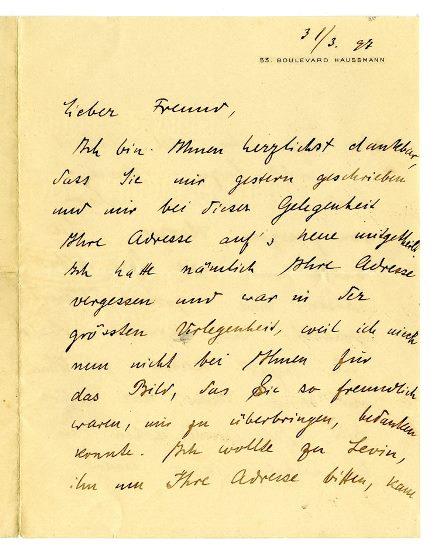 31/3. 97
53. BOULEVARD HAUSSMANN
Lieber Freund,
Ich bin Ihnen herzlichst dankbar,
dass Sie mir gestern geschrieben
und mir bei dieser Gelegenheit
Ihre Adresse auf's neue mitgetheilt.
Ich hatte nämlich Ihre Adresse
vergessen und war in der
grössten Verlegenheit, weil ich mich
nun nicht bei Ihnen für
das Bild, das Sie so freundlich
waren, mir zu überbringen, bedanken
konnte. Ich wollte zu Levin,
ihn um Ihre Adresse bitten, kam